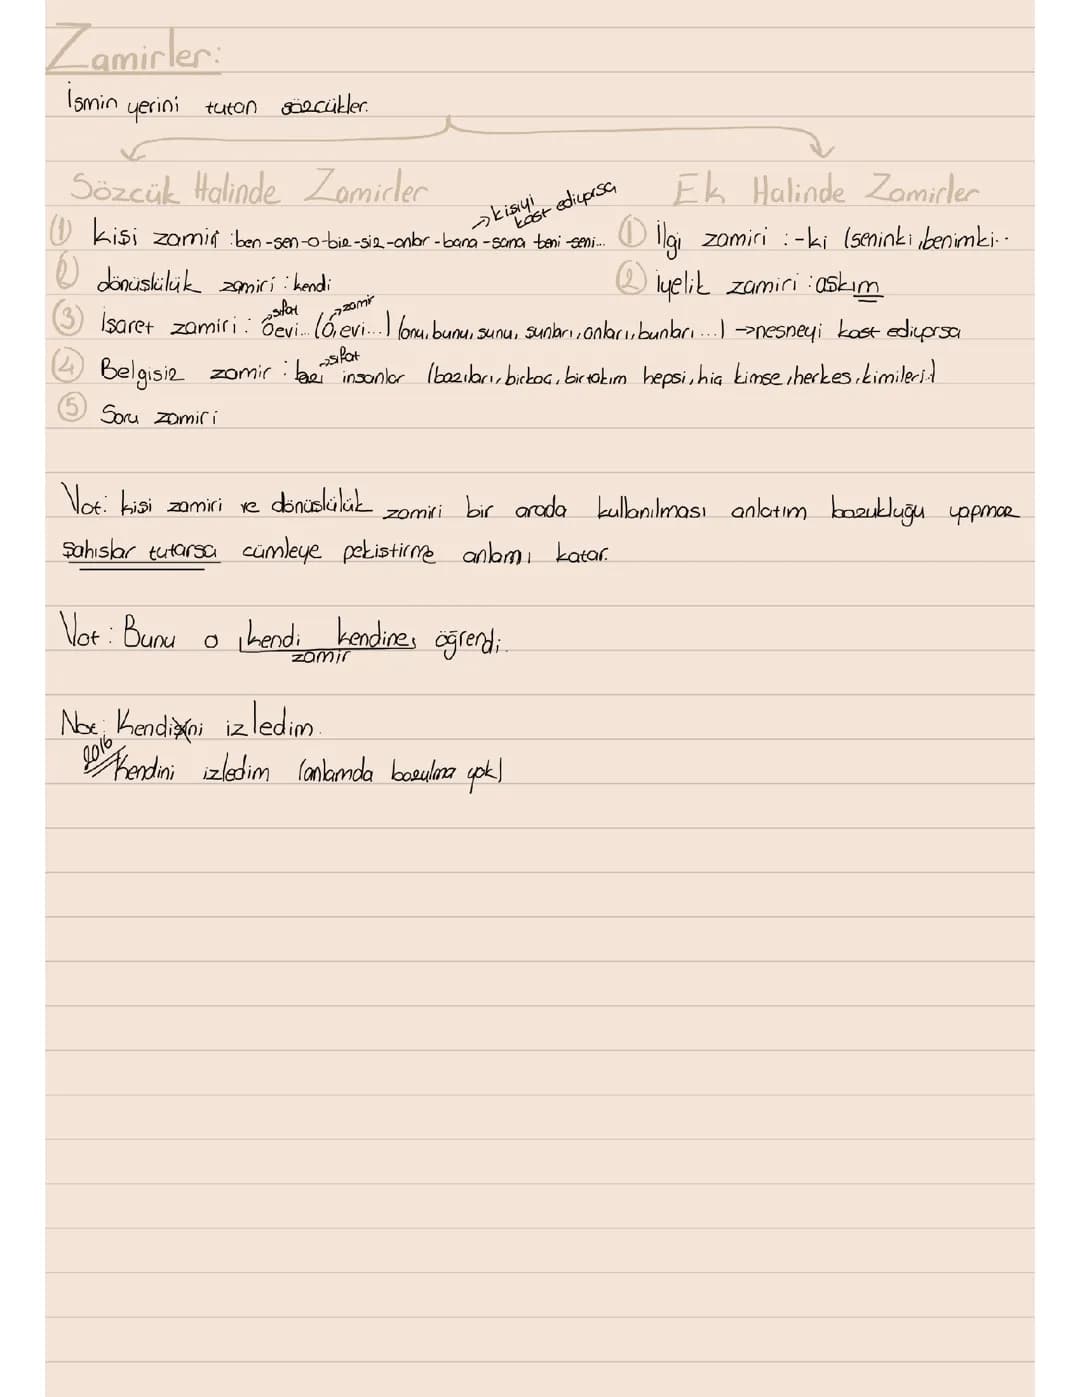 Zamirler:
İsmin yerini tutan sözcükler.
Sözcük Halinde Zamirler
Ek Halinde Zamirler
→kişiyi kast ediyorsa
① kişi zamiri :ben-sen-o-biz-siz-onlar-bana-sana beni-seni...
① İlgi zamiri :-ki (seninki, benimki..
② dönüslülük zamiri : kendi
② iyelik zamiri : askım
→sıfat →zamir
③ İsaret zamiri : O evi... (O, evi...) (onu, bunu, sunu, sunları, onları, bunları ...) →nesneyi kast ediyorsa
→sıfat
④ Belgisiz zamir : bazı insanlar (bazıları, birkaç, birtakım hepsi, hiç kimse, herkes, kimileri..)
⑤ Soru zamiri
Not: kisi zamiri ve dönüslülük zamiri bir arada kullanılması anlatım bozukluğu yapmaz
şahıslar tutarsa cümleye pekistirme anlamı katar.
Not : Bunu o kendi kendine öğrendi.
zamir
Not: Kendini izledim.
2016 Kendini izledim (anlamda bozulma yok)